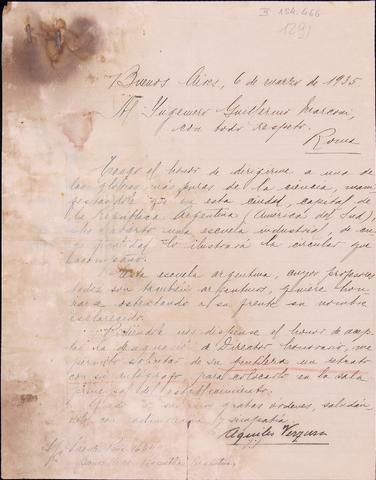 B 154.466
(29)
Buenos Aires, 6 de marzo de 1935
Al Ingeniero Guillermo Marconi,
con todo respeto.
Roma
Tengo el honor de dirigirme a una de
las glorias más puras de la ciencia, mani
festándole que en esta ciudad, capital de
la República Argentina (América del Sud),
abierto una escuela industrial, de cu
lo ilustrará la circular que
acompaño.
Esta escuela argentina, cuyos profesores
todos son también argentinos, quiere hon
rarse ostentando a su frente su nombre
esclarecido.
nos dispense el honor de acep
tar la Director honorario, me
permito solicitar de su gentileza un retrato
con su autógrafo para colocarlo en la sala
del establecimiento.
gratas órdenes, saludán
dolo con admiración y simpatía.
Aquiles